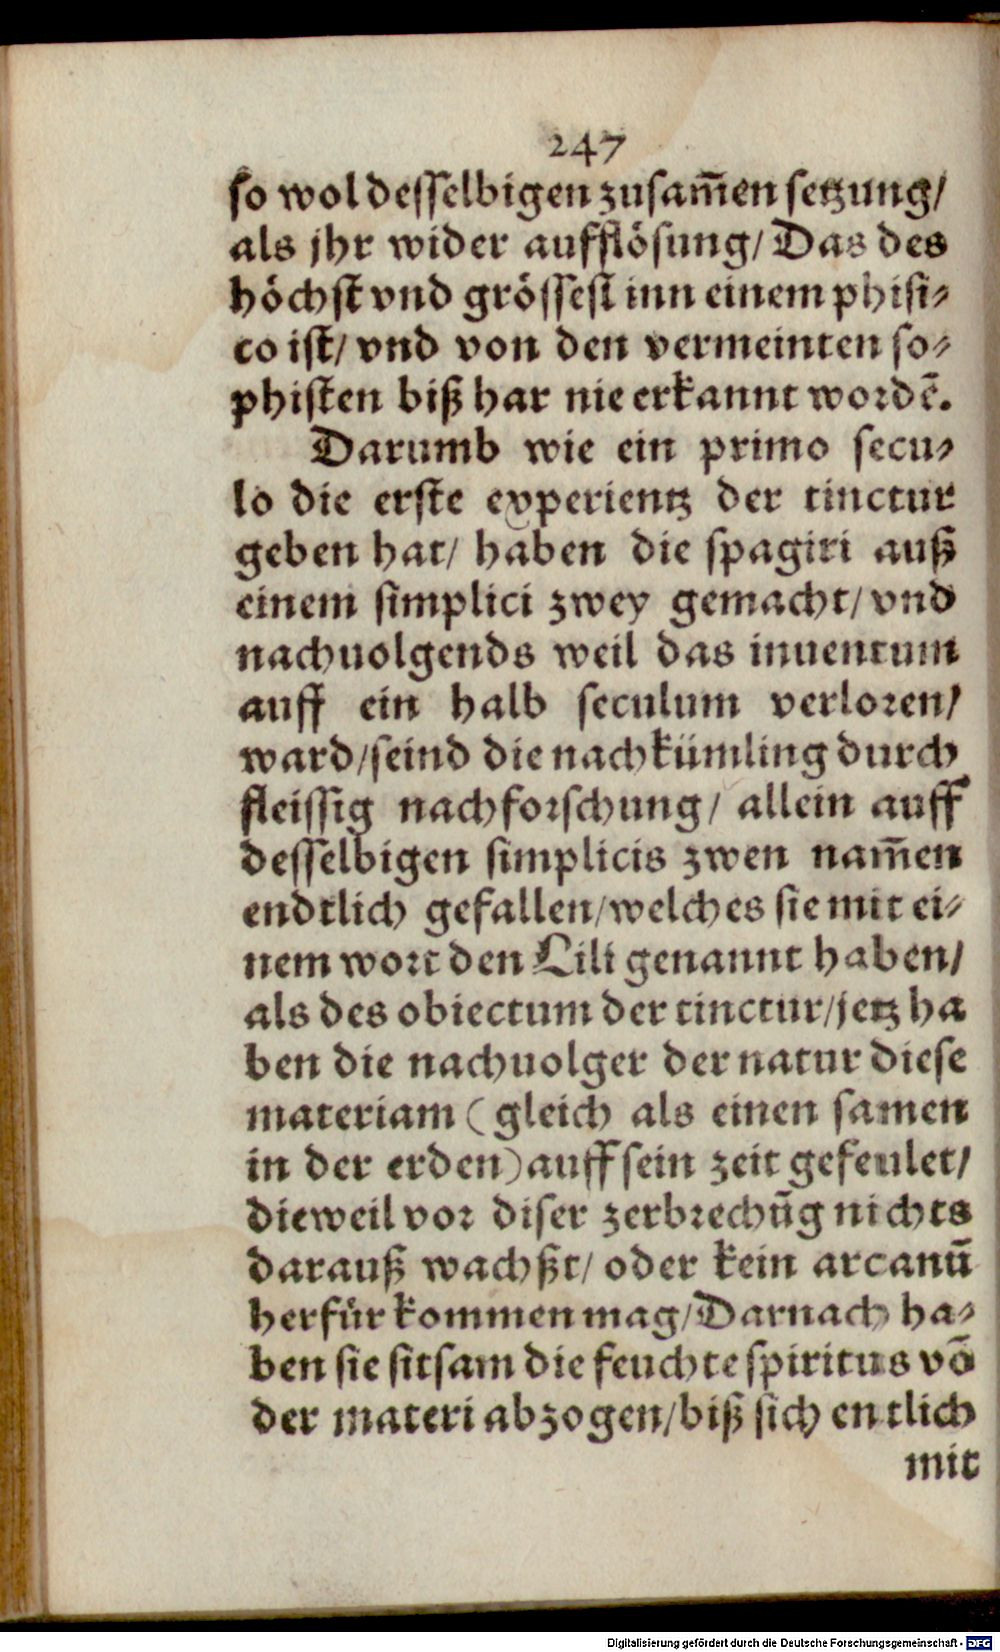 247
so wol desselbigen zusam̄en setzung/
als jhr wider aufflösung/ Das des
höchst vnd grössest inn einem phisi⸗
co ist/ vnd von den vermeinten so⸗
phisten biß har nie erkannt wordē.
Darumb wie ein primo secu⸗
lo die erste experientz der tinctur
geben hat/ haben die spagiri auß
einem simplici zwey gemacht/ vnd
nachuolgends weil das inuentum
auff ein halb seculum verloren/
ward/seind die nachkümling durch
fleissig nachforschung/ allein auff
desselbigen simplicis zwen nam̄en
endtlich gefallen/welches sie mit ei⸗
nem wort den Lili genannt haben/
als des obiectum der tinctur/jetz ha
ben die nachuolger der natur diese
materiam (gleich als einen samen
in der erden) auff sein zeit gefeulet/
dieweil vor diser zerbrechūg nichts
darauß wachßt/ oder kein arcanū
herfür kommen mag/ Darnach ha⸗
ben sie sitsam die feuchte spiritus vō
der materi abzogen/biß sich entlich
mit
Digitalisierung gefördert durch die Deutsche Forschungsgemeinschaft - DFG